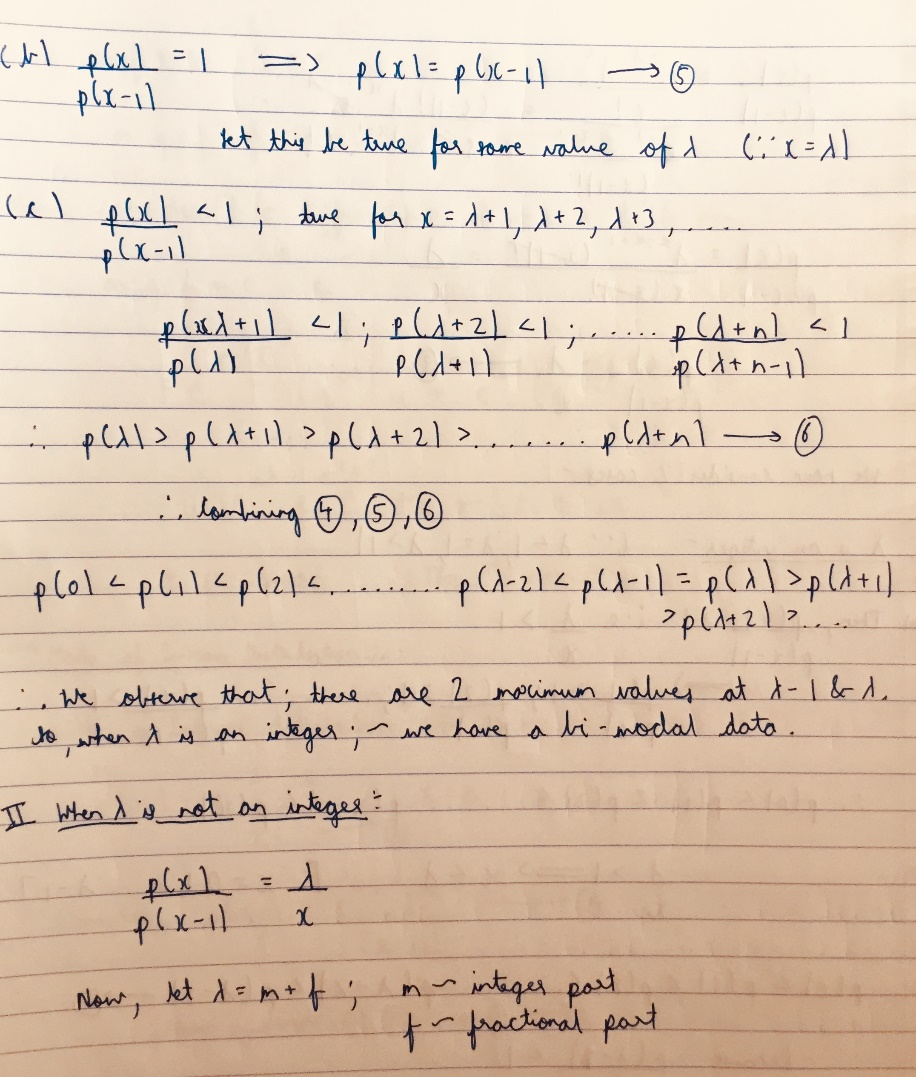 (b) p(x)/p(x-1) = 1 ⟹ p(x) = p(x-1) ⟶ ⑤
let this be true for some value of λ (∵ x = λ)
(c) p(x)/p(x-1) < 1 ; true for x = λ+1, λ+2, λ+3, .....
p(λ+1)/p(λ) < 1 ; p(λ+2)/p(λ+1) < 1 ; ...... p(λ+n)/p(λ+n-1) < 1
∴ p(λ) > p(λ+1) > p(λ+2) > ........ p(λ+n) ⟶ ⑥
∴ combining ④, ⑤, ⑥
p(0) < p(1) < p(2) < .......... p(λ-2) < p(λ-1) = p(λ) > p(λ+1)
> p(λ+2) > ....
∴ We observe that; there are 2 maximum values at λ-1 & λ.
so, when λ is an integer; ~ we have a bi-modal data.
II When λ is not an integer:-
p(x)/p(x-1) = λ/x
Now, let λ = m + f ; m ~ integer part
f ~ fractional part